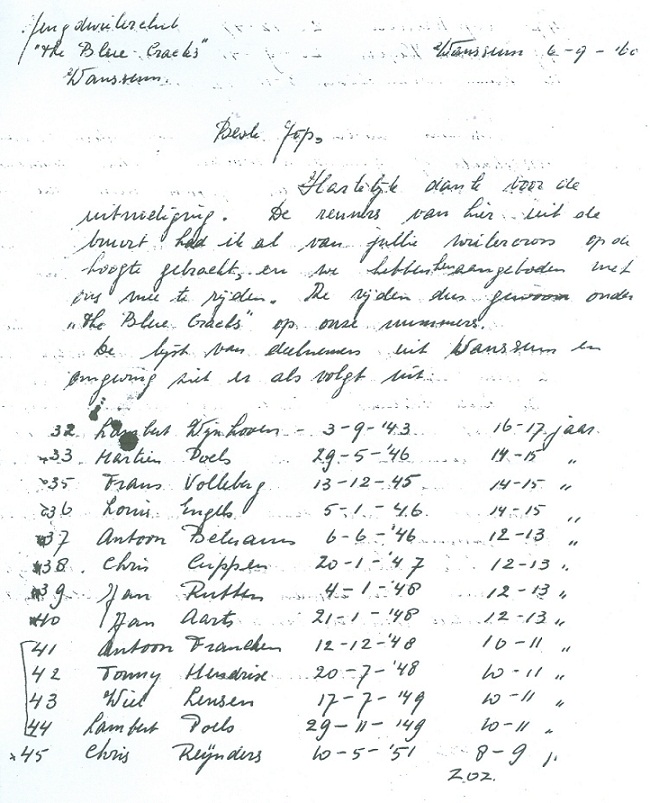 Jeugdwielerclub
"The Blue-Cracks" Wanssum 6-9-'60
Wanssum.
Beste Jop,
Hartelijk dank voor de
uitnodiging. De renners van hier uit de
buurt had ik al van jullie wielercross op de
hoogte gebracht, en we hebben hen aangeboden met
ons mee te rijden. Ze rijden dus gewoon onder
"The Blue Cracks" op onze nummers.
De lijst van deelnemers uit Wanssum en
omgeving ziet er als volgt uit.
32 Lambert Wijnhoven - 3-9-'43 16-17 jaar
33 Martien Poels 29-5-'46 14-15 "
35 Frans Volleberg 13-12-45 14-15 "
36 Louis Engels 5-1-46 14-15 "
37 Antoon 6-6-'46 12-13 "
38 Chris Cuppen 20-1-'47 12-13 "
39 Jan Rutten 4-1-'48 12-13 "
40 Jan Aarts 21-1-'48 12-13 "
41 Antoon Francken 12-12-'48 10-11 "
42 Tonny Hendrix 20-7-'48 10-11 "
43 Wiel Lensen 17-7-'49 10-11 "
44 Lambert Poels 29-11-'49 10-11 "
45 Chris Reijnders 10-5-'51 8-9 "
Z.O.Z.